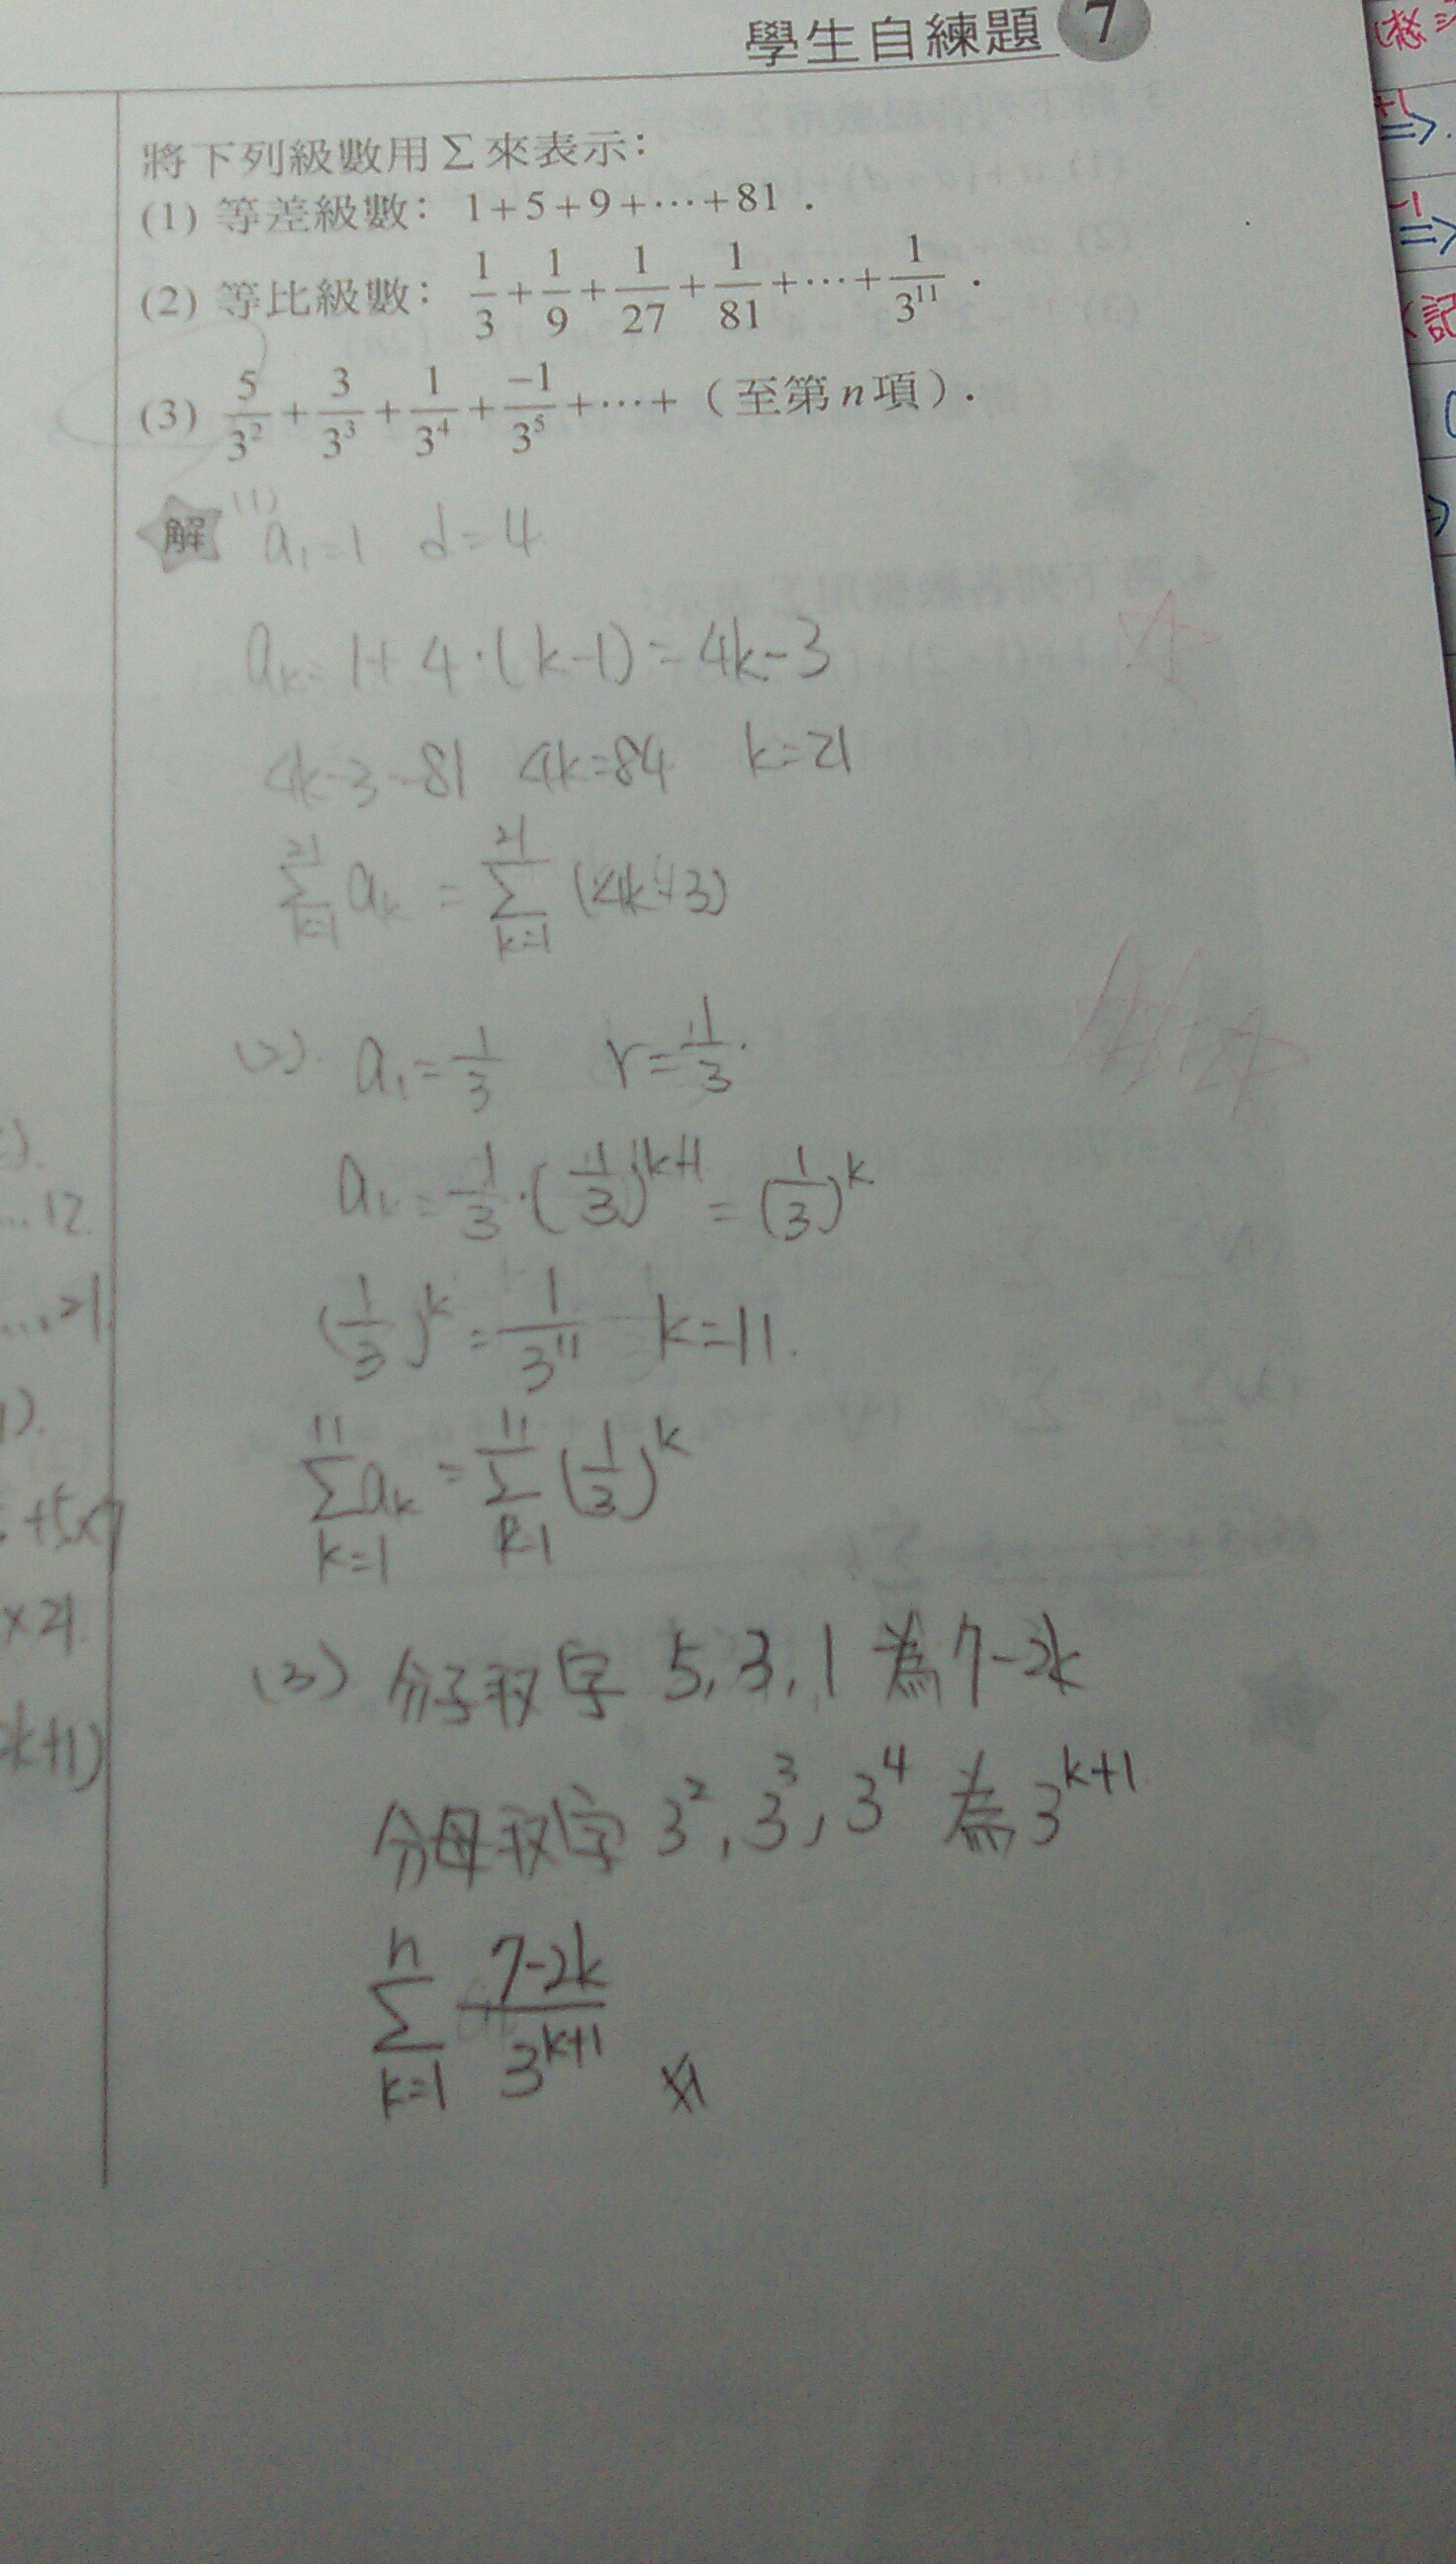 學生自練題 7
將下列級數用Σ來表示：
(1) 等差級數： 1+5+9+⋯+81．
(2) 等比級數： 1/3+1/9+1/27+1/81+⋯+1/3^11．
(3) 5/3^2+3/3^3+1/3^4+-1/3^5+⋯+（至第n項）．
解 (1) a₁=1 d=4
a_k=1+4·(k-1)=4k-3
4k-3=81 4k=84 k=21
21 Σ k=1 a_k = 21 Σ k=1 (4k-3)
(2). a₁=1/3 r=1/3.
a_k=1/3·(1/3)^k-1=(1/3)^k
(1/3)^k=1/3^11 k=11.
11 Σ k=1 a_k = 11 Σ k=1 (1/3)^k
(3) 分子取字 5,3,1 為 7-2k
分母取字 3^2,3^3,3^4 為 3^k+1
n Σ k=1 7-2k/3^k+1
…12.
…21.
+5×7
×21.
k+1)